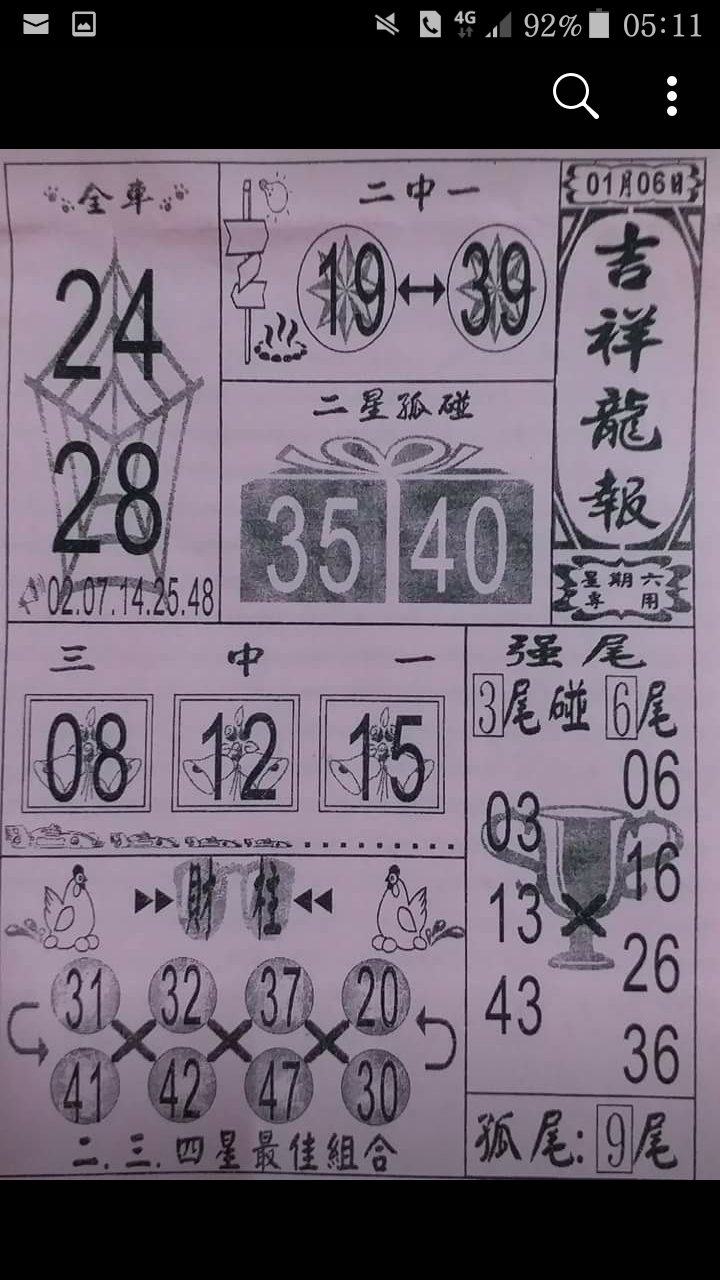 4G 92% 05:11
全車
24
28
02.07.14.25.48
二中一
19 39
二星孤碰
35 40
01月06日
吉祥龍報
星期六
專用
三中一
08 12 15
强尾
3尾碰6尾
03
13
43
06
16
26
36
財柱
31 32 37 20
41 42 47 30
二.三.四星最佳組合
孤尾:9尾